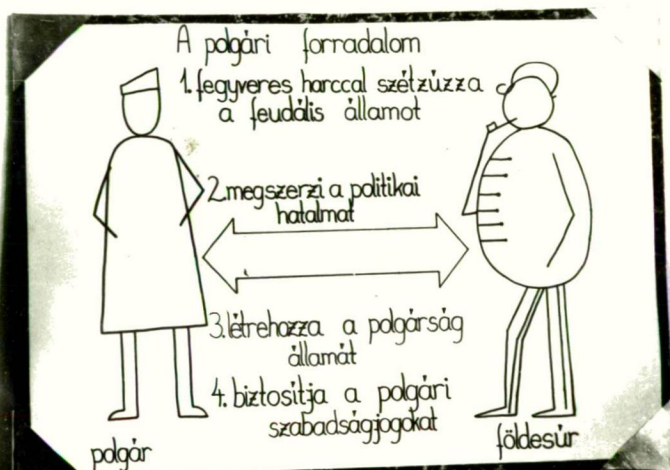 A polgári forradalom
1. fegyveres harccal szétzúzza
a feudális államot
2. megszerzi a politikai
hatalmat
3. létrehozza a polgárság
államát
4. biztosítja a polgári
szabadságjogokat
polgár
földesúr